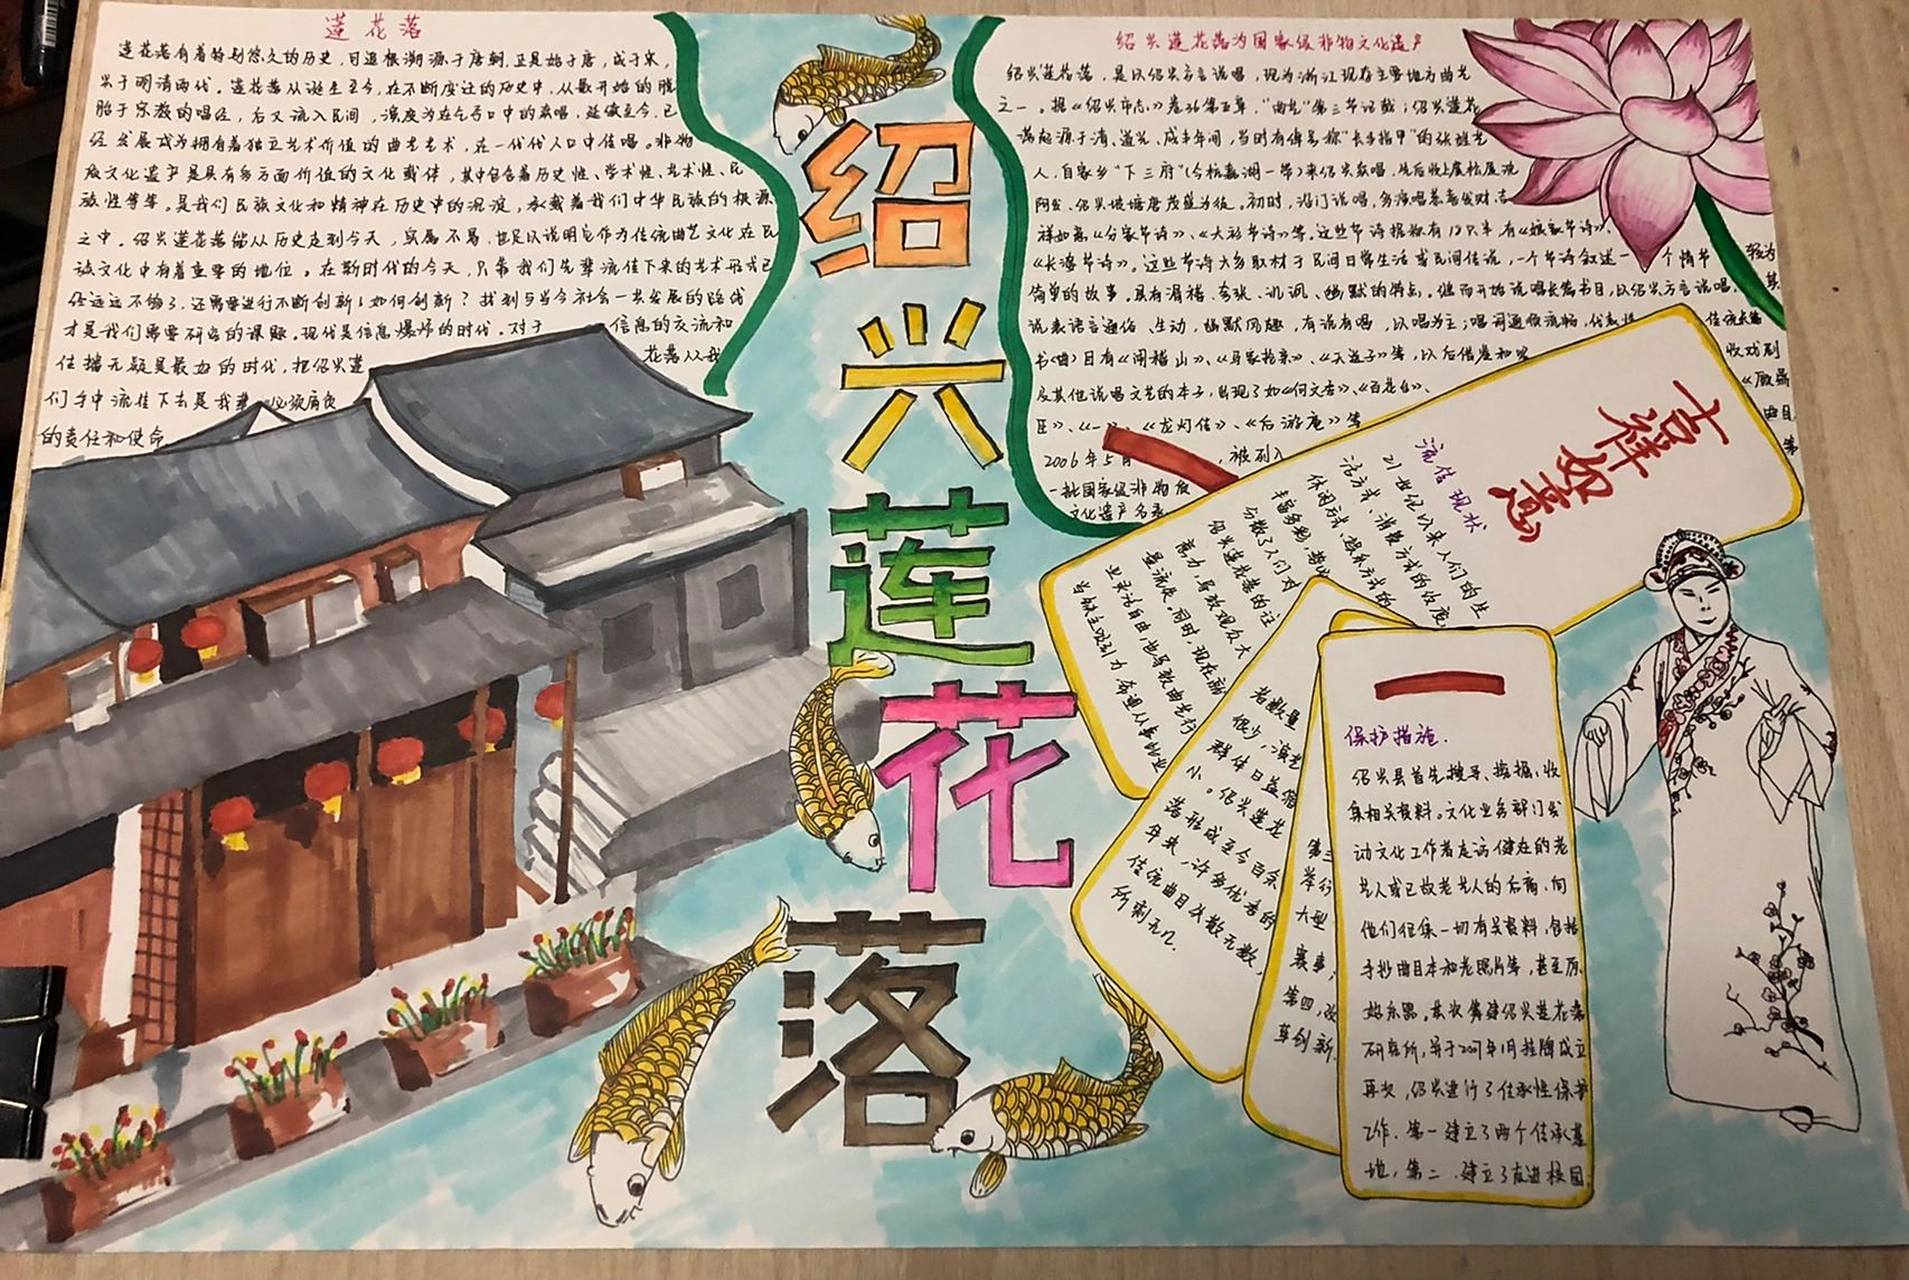 莲花落
莲花落有着特别悠久的历史,可追根溯源于唐朝,正是始于唐,成于宋,
兴于明清两代。莲花落从诞生至今,在不断变迁的历史中,从最开始的脱
胎于宗教的唱经,后又流入民间,演度为在乞丐口中的乘唱,延续至今,已
经发展成为拥有着独立艺术价值的曲艺艺术,在一代代人口中传唱。非物
质文化遗产是具有多方面价值的文化载体,其中包含着历史性、学术性、艺术性、民
族性等等。是我们民族文化和精神在历史中的沉淀,承载着我们中华民族的根源
之中。绍兴莲花落能从历史走到今天,实属不易,也足以说明它作为传统曲艺文化在民
族文化中有着重要的地位。在新时代的今天,只靠我们先辈流传下来的艺术形式已
经远远不够了,还需要进行不断创新!如何创新?找到与当今社会一共发展的路线
才是我们需要研究的课题。现代是信息爆炸的时代,对于 信息的交流和
传播无疑是最好的时代,把绍兴莲 花落从我
们手中流传下去是我辈 必须肩负
的责任和使命
绍兴莲花落
绍兴莲花落为国家级非物文化遗产
绍兴莲花落,是以绍兴方言说唱,现为浙江现存主要地方曲艺
之一。据《绍兴市志》卷36第五章,"曲艺"第三节记载;绍兴莲花
落起源于清、道光、咸丰年间,当时有俾号称"长手指甲"的张姓艺
人,自家乡"下三府"(今杭嘉湖一带)来绍兴献唱,先后收上虞松厦沈
阿发、绍兴坡塘唐茂盛为徒。初时,沿门说唱,多演唱恭喜发财、吉
祥如意《分家节诗》、《大衫节诗》等。这些节诗据称有18只半 有《娘家节诗》、
《长凑节诗》。这些节诗大多取材于民间日常生活或民间传说,一个节诗叙述一 个情节 较为
简单的故事。具有滑稽、夸张、讥讽、幽默的特点。继而开始说唱长篇书目,以绍兴方言说唱, 其
说表语言通俗、生动,幽默风趣,有说有唱,以唱为主;唱词通顺流畅,代表性 传统长篇
书(曲)目有《闹稽山》、《马家抢亲》、《天送子》等,以后借鉴和吸 收戏剧
及其他说唱文艺的本子,出现了如《何文秀》、《百花台》、 《顾鼎
臣》、《一 》、《龙灯传》、《后游庵》等 曲目
2006年5月 ,被列入 第
一批国家级非物质
文化遗产名录
吉祥如意
流传现状
21世纪以来人们的生
活方式、消费方式的改变
休闲方式、娱乐方式的
丰富多彩,
分散了人们对
绍兴莲花落的注
意力,导致观众大
量流失。同时,现在
业灵活自由,也导致曲艺行
当缺乏吸引力,希望从事的业
者数量
很少,演艺
群体日益缩
小。绍兴莲花
落形成至今百余
年来,许多优秀的
传统曲目失散无数,
所剩无几。
第三
举行
大型
赛事;
第四,改
革创新
保护措施.
绍兴县首先搜寻、挖掘、收
集相关资料。文化业务部门发
动文化工作者走访健在的老
艺人或已故老艺人的后裔,向
他们征集一切有关资料,包括
手抄曲目本和老照片等,甚至原
始乐器。其次筹建绍兴莲花落
研究所,并于2007年1月挂牌成立
再次,绍兴进行了传承性保护
工作.第一建立了两个传承基
地,第二.建立了友进校园